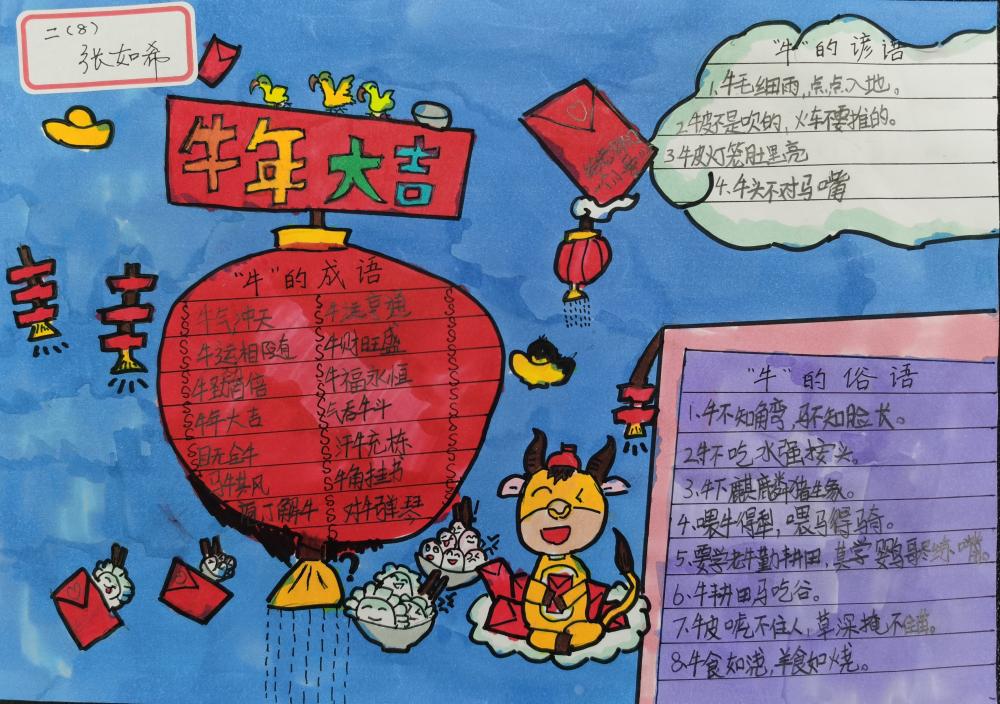 二(8)
张如希
牛年大吉
"牛"的成语
牛气冲天 牛运亨通
牛运相随 牛财旺盛
牛劲百倍 牛福永恒
牛年大吉 气吞牛斗
目无全牛 汗牛充栋
马牛其风 牛角挂书
庖丁解牛 对牛弹琴
"牛"的谚语
1.牛毛细雨,点点入地。
2.牛皮不是吹的,火车不是推的。
3.牛皮灯笼肚里亮
4.牛头不对马嘴
"牛"的俗语
1.牛不知角弯,马不知脸长。
2.牛不吃水强按头。
3.牛下麒麟猪生象。
4.喂牛得犁,喂马得骑。
5.要学老牛勤耕田,莫学鹦鹉练嘴。
6.牛耕田马吃谷。
7.牛皮唬不住人,草深掩不住。
8.牛食如浇,羊食如烧。